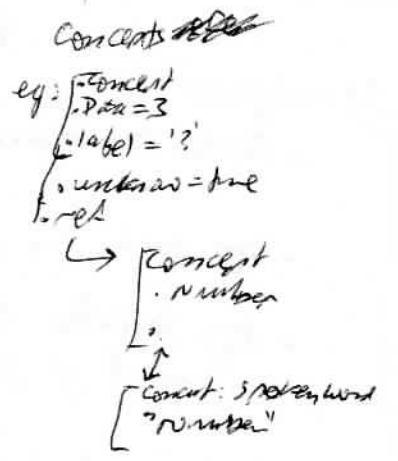 Concepts
eg: Concept
.Data = 3
.label = '?'
.unknown = true
.ref
Concept
.Number
.
Concept: spoken word
"Number"